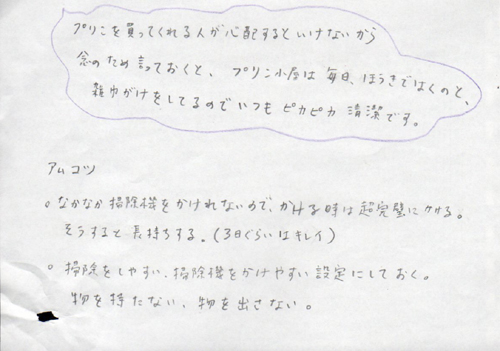 プリンを買ってくれる人が心配するといけないから
念のため言っておくと、プリン小屋は毎日、ほうきではくのと、
雑巾がけをしてるのでいつもピカピカ清潔です。
アムコツ
○なかなか掃除機をかけれないので、かける時は超完璧にかける。
そうすると長持ちする。(3日ぐらいはキレイ)
○掃除をしやすい、掃除機をかけやすい設定にしておく。
物を持たない、物を出さない。